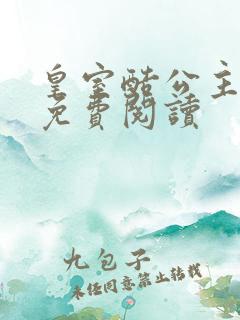 皇室酷公主
免費閱讀
九包子
未经同意禁止转载